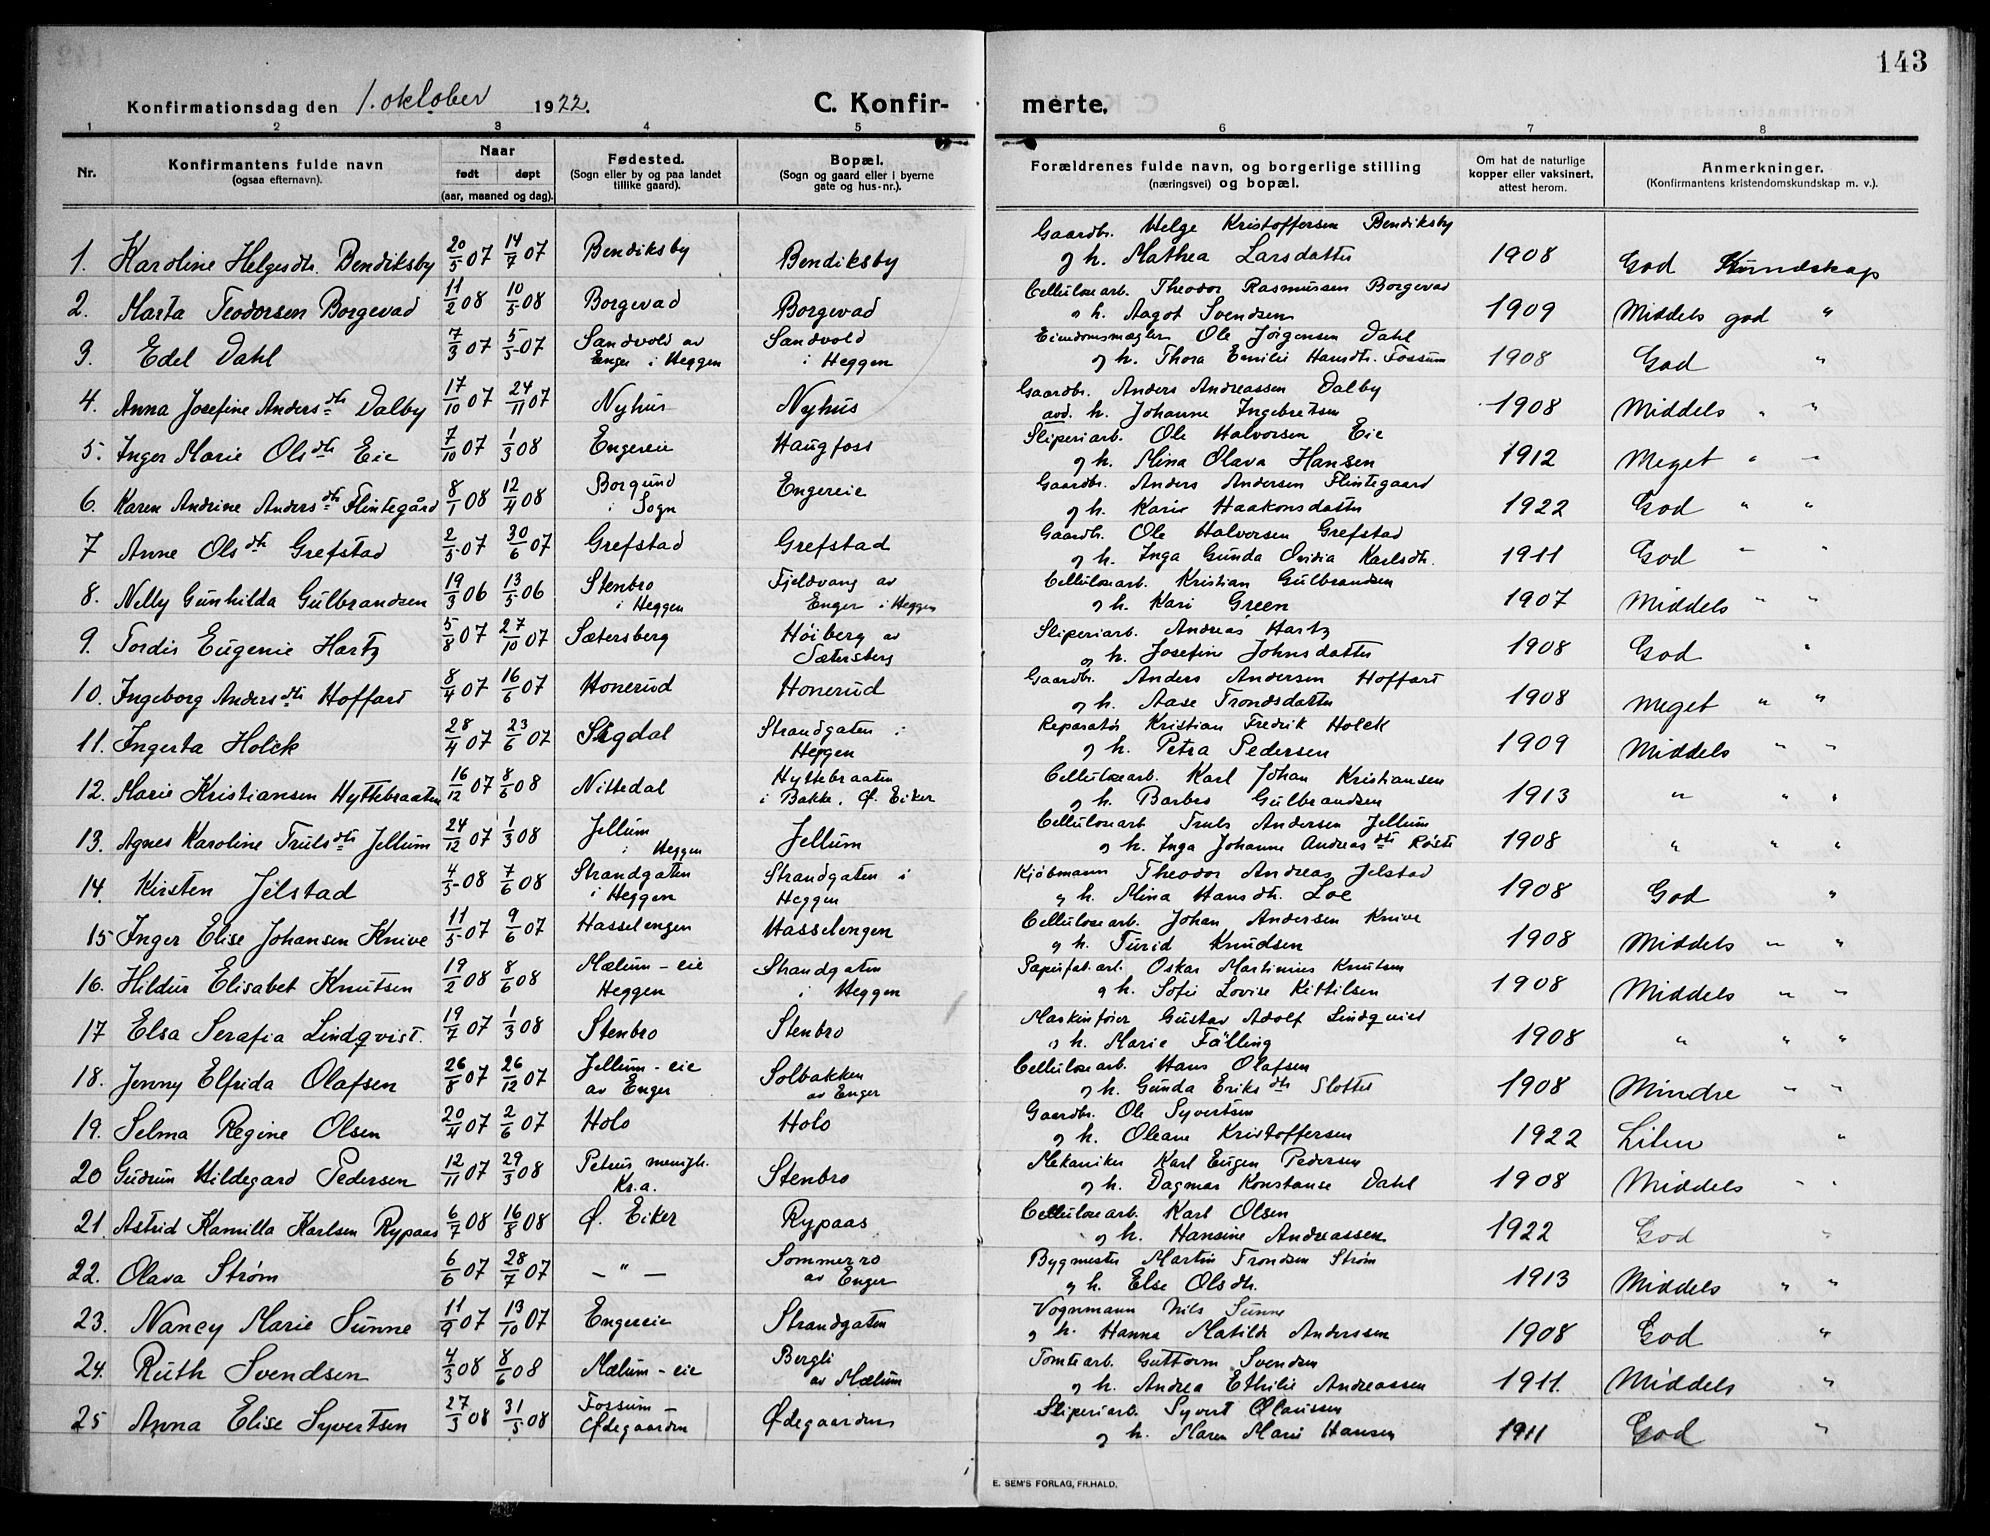 143
Konfirmationsdag den 1. oktober 1922. C. Konfirmerte.
1 2 3 4 5 6 7 8
Nr. Konfirmantens fulde navn (ogsaa efternavn). Naar født døpt (aar, maaned og dag). Fødested. (Sogn eller by og paa landet tillike gaard). Bopæl. (Sogn og gaard eller i byerne gate og hus-nr.). Forældrenes fulde navn, og borgerlige stilling (næringsvei) og bopæl. Om hat de naturlige kopper eller vaksinert, attest herom. Anmerkninger. (Konfirmantens kristendomskundskap m. v.).
1. Karoline Helgesdtr. Bendiksby 20/5 07 14/7 07 Bendiksby Bendiksby Gaardbr. Helge Kristoffersen Bendiksby og h. Mathea Larsdatter 1908 God Kundskap
2. Marta Teodorsen Borgevad 11/2 08 10/5 08 Borgevad Borgevad Cellulosearb. Theodor Rasmussen Borgevad og h. Aagot Svendsen 1909 Middels god "
3. Edel Dahl 7/3 07 5/5 07 Sandvold av Enger i Heggen Sandvold i Heggen Eiendomsmægler Ole Jørgensen Dahl og h. Thora Emilie Hansdtr. Fossum 1908 God "
4. Anna Josefine Andersdtr Dalby 17/10 07 24/11 07 Nyhus Nyhus Gaardbr. Anders Andreassen Dalby avd. h. Johanne Ingebretsen 1908 Middels " "
5. Inger Marie Olsdtr Eie 7/10 07 1/3 08 Engereie Haugfoss Sliperiarb. Ole Halvorsen Eie og h. Mina Olava Hansen 1912 Meget " "
6. Karen Andrine Andersdtr Flintegård 8/1 08 12/4 08 Borgund i Sogn Engereie Gaardbr. Anders Andersen Flintegaard og h. Kari Haakonsdatter 1922 God " "
7 Anne Olsdtr Grefstad 2/5 07 30/6 07 Grefstad Grefstad Gaardb. Ole Halvorsen Grefstad og h. Inga Gunda Ovidia Karlsdtr. 1911 God " "
8. Nelly Gunhilda Gulbrandsen 19/3 06 13/5 06 Stenbro i Heggen Fjeldvang av Enger i Heggen Cellulosearb. Kristian Gulbrandsen og h. Kari Green 1907 Middels " "
9. Tordis Eugenie Hartz 5/8 07 27/10 07 Sætersberg Høiberg av Sætersberg Sliperiarb. Andreas Hartz og h. Josefine Johnsdatter 1908 God "
10. Ingeborg Andersdtr Hoffart 8/4 07 16/6 07 Honerud Honerud Gaardbr. Anders Andersen Hoffart og h. Aase Trondsdatter 1908 Meget " "
11. Ingerta Holck 28/4 07 23/6 07 Sigdal Strandgaten i Heggen Reparatør Kristian Fredrik Holck og h. Petra Pedersen 1909 Middels " "
12. Marie Kristiansen Hyttebraaten 16/12 07 8/6 08 Nittedal Hyttebraaten i Bakke, Ø. Eiker Cellulosearb. Karl Johan Kristiansen og h. Barbro Gulbrandsen 1913 " " "
13. Agnes Karoline Trulsdtr Jellum 24/12 07 1/3 08 Jellum i Heggen Jellum Cellulosearb Truls Andersen Jellum og h. Inga Johanne Andreasdtr Røste 1908 " " "
14. Kirsten Jelstad 4/3 08 7/6 08 Strandgaten i Heggen Strandgaten i Heggen Kjøbmann Theodor Andreas Jelstad og h. Mina Hansdtr. Loe 1908 God "
15 Inger Elise Johansen Knive 11/5 07 9/6 07 Hasselengen Hasselengen Cellulosearb. Johan Andersen Knive og h. Turid Knudsen 1908 Middels " "
16. Hildur Elisabet Knutsen 19/2 08 8/6 08 Mælum-eie Heggen Strandgaten i Heggen Papirfab.arb. Oskar Martinius Knutsen og h. Sofie Lovise Kittilsen 1908 Middels " "
17 Elsa Serafia Lindqvist. 19/7 07 1/3 08 Stenbro Stenbro Maskinfører Gustav Adolf Lindqvist og h. Marie Fälling 1908 " " "
18. Jenny Elfrida Olafsen 26/8 07 26/12 07 Jellum-eie av Enger Solbakken av Enger Cellulosearb. Hans Olafsen og h. Gunda Eriksdtr Slottet 1908 Mindre " "
19. Selma Regine Olsen 20/4 07 2/6 07 Holo Holo Gaardbr. Ole Syvertsen og h. Oleane Kristoffersen 1922 Liten "
20 Gudrun Hildegard Pedersen 12/11 07 29/3 08 Petrus menigh. Kr.a. Stenbro Mekaniker Karl Eugen Pedersen og h. Dagmar Konstanse Dahl 1908 Middels " "
21. Astrid Kamilla Karlsen Rypaas 6/7 08 16/8 08 Ø. Eiker Rypaas Cellulosearb. Karl Olsen og h. Hansine Andreassen 1922 God "
22. Olava Strøm 6/6 07 28/7 07 — " — Sommerro av Enger Bygmester Martin Trondsen Strøm og h. Else Olsdtr. 1913 Middels " "
23. Nancy Marie Sunne 11/9 07 13/10 07 Engereie Strandgaten Vognmann Nils Sunne og h. Hanna Matilde Anderssen 1908 God "
24. Ruth Svendsen 4/3 08 8/6 08 Mælum-eie Bergli av Mælum Tomtearb. Guttorm Svendsen og h. Andrea Ethilie Andreassen 1911. Middels "
25 Anna Elise Syvertsen 27/3 08 31/5 08 Fossum-Ødegaarden Ødegaarden Sliperiarb. Syvert Olaussen og h. Maren Marie Hansen 1911 God "
E. SEM'S FORLAG, FR.HALD.